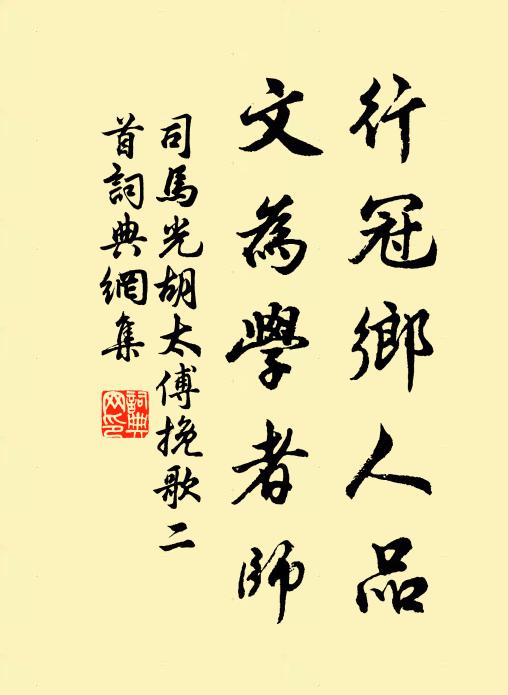 行冠鄉人品
文為學者師
司馬光胡太傅挽歌二
首詞典網集
詞典
网印